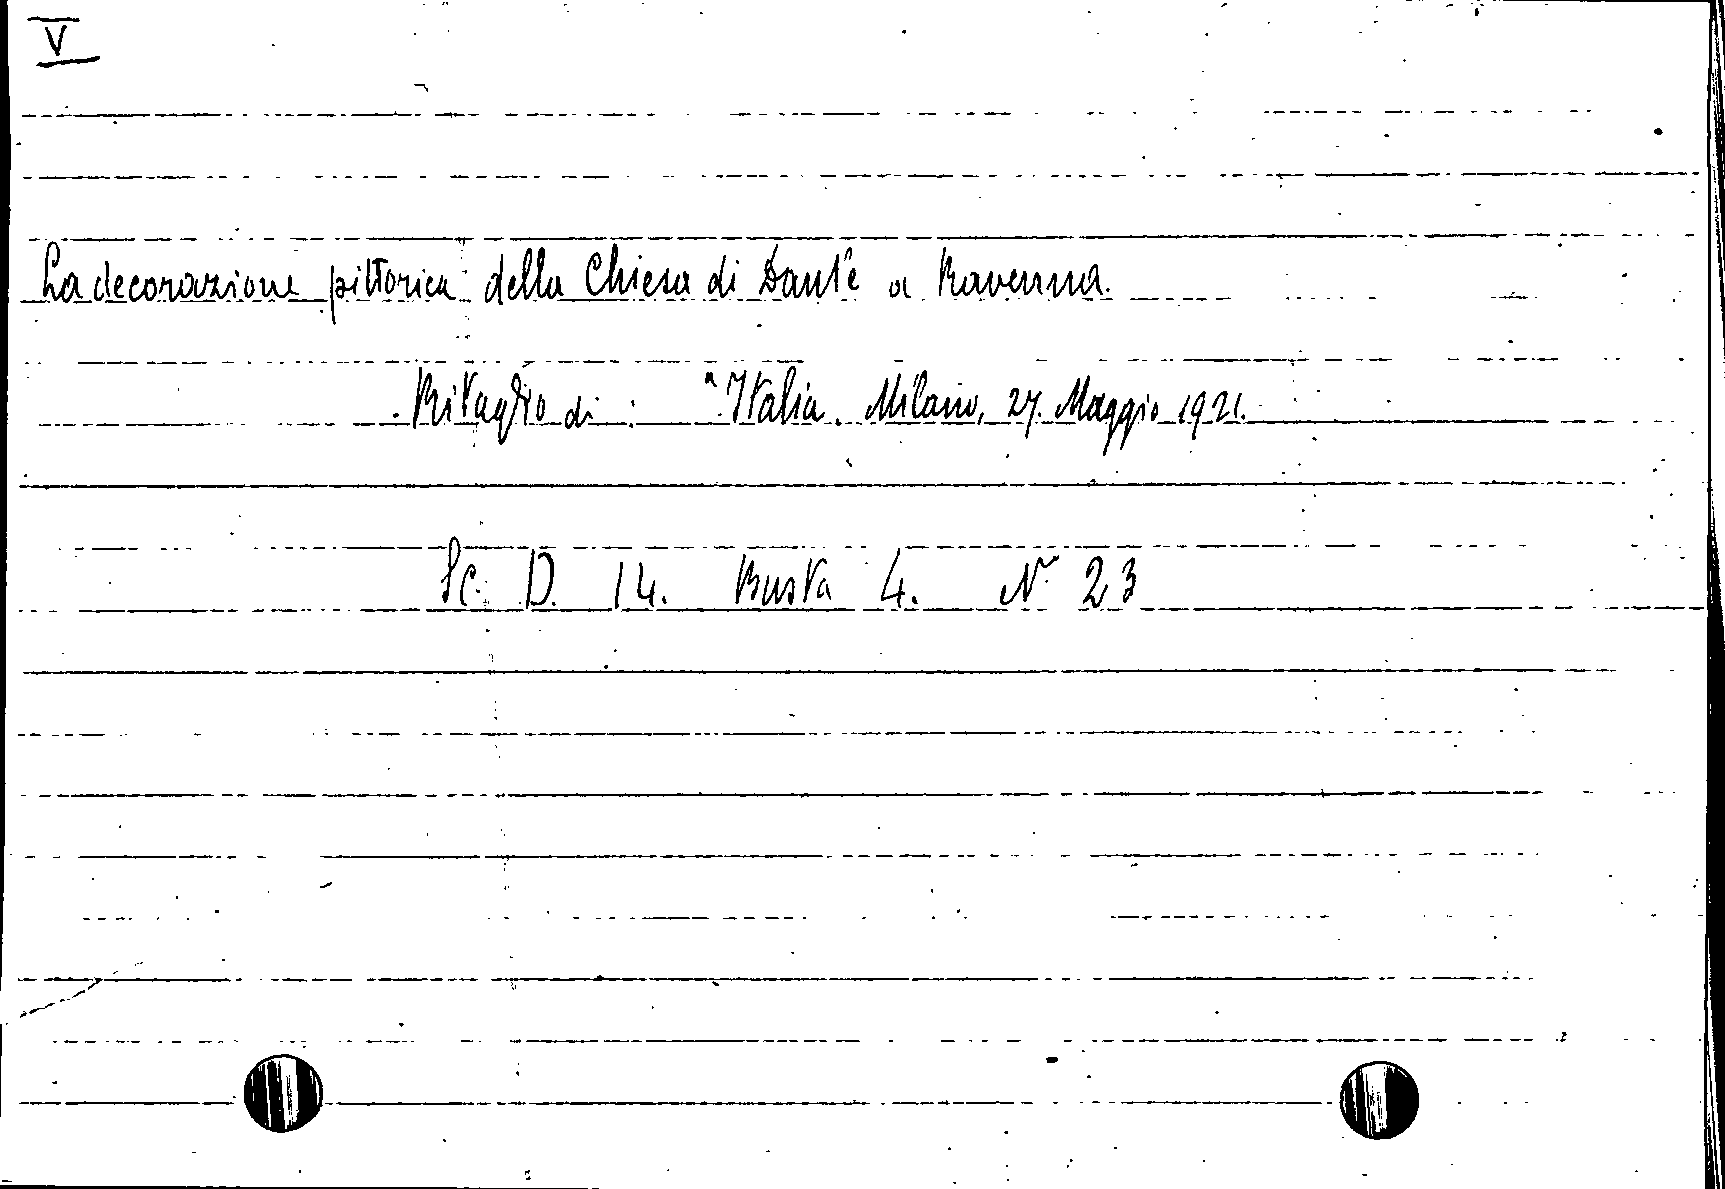 V
La decorazione pittorica della Chiesa di Dante a Ravenna.
Ritaglio di: "Italia. Milano, 27. Maggio 1921.
Sc. D. 14. Busta 4. N. 23